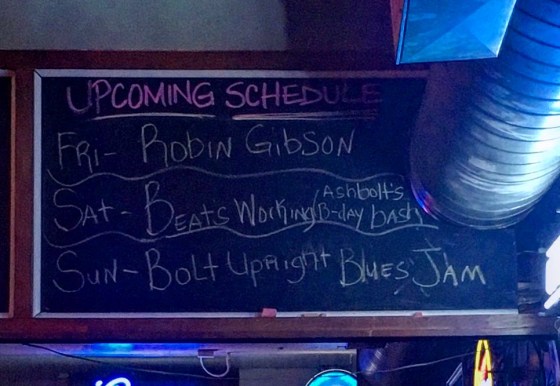 UPCOMING SCHEDULE
FRI- ROBIN GIBSON
SAT- BEATS WORKING/ Ashbolt's
B-day bash
SUN- BOLT UPRIGHT BLUES JAM